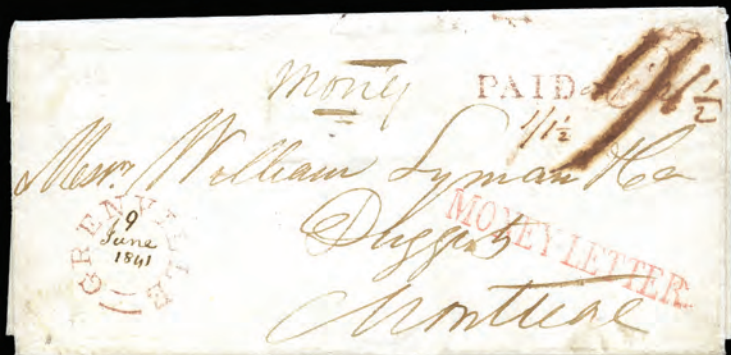 Money
PAID
1/1½
Messrs William Lyman & Co
Druggists
Montreal
MONEY LETTER
GRENVILLE
9
June
1841